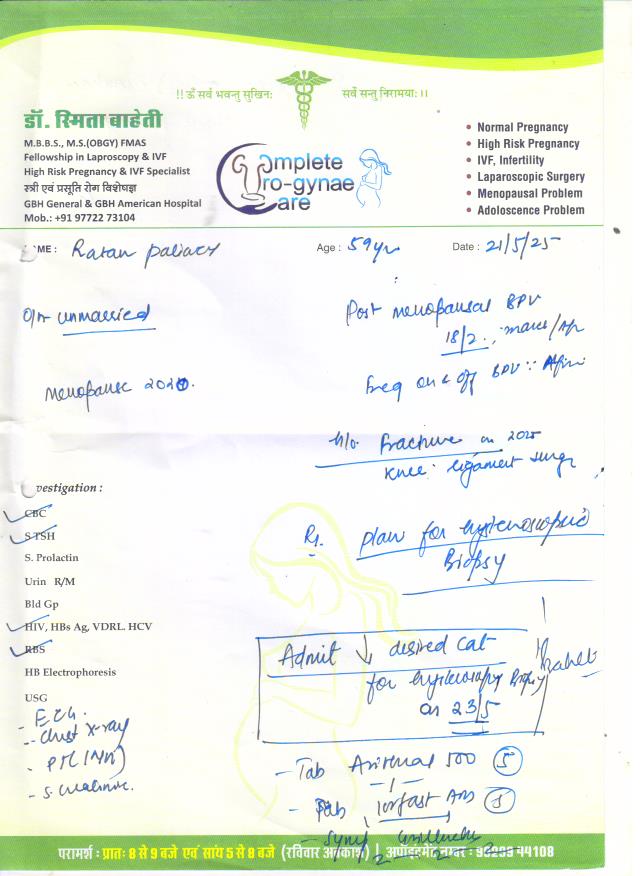 !! ॐ सर्वे भवन्तु सुखिनः सर्वे सन्तु निरामयाः ।।
डॉ. स्मिता बाहेती
M.B.B.S., M.S.(OBGY) FMAS
Fellowship in Laproscopy & IVF
High Risk Pregnancy & IVF Specialist
स्त्री एवं प्रसूति रोग विशेषज्ञ
GBH General & GBH American Hospital
Mob.: +91 97722 73104
Complete
Uro-gynae
Care
• Normal Pregnancy
• High Risk Pregnancy
• IVF, Infertility
• Laparoscopic Surgery
• Menopausal Problem
• Adoloscence Problem
ME : Ratan Age : 59yr Date : 21/5/25
unmarried
Post menopausal BPV
18/2
Menopause
on & off BPV
h/o. fracture on 2025
knee ligament
vestigation :
CBC
S TSH
S. Prolactin
Urin R/M
Bld Gp
HIV, HBs Ag, VDRL. HCV
RBS
HB Electrophoresis
USG
- ECG.
- Chest X-ray
Rx. plan for hysteroscopic
Biopsy
Admit ↓ desired Cat
for hysteroscopy Biopsy
on 23/5
- Tab 500 5
- Tab 5
परामर्श : प्रातः 8 से 9 बजे एवं सांय 5 से 8 बजे (रविवार अवकाश) | अपॉइंटमेंट नम्बर : 44108